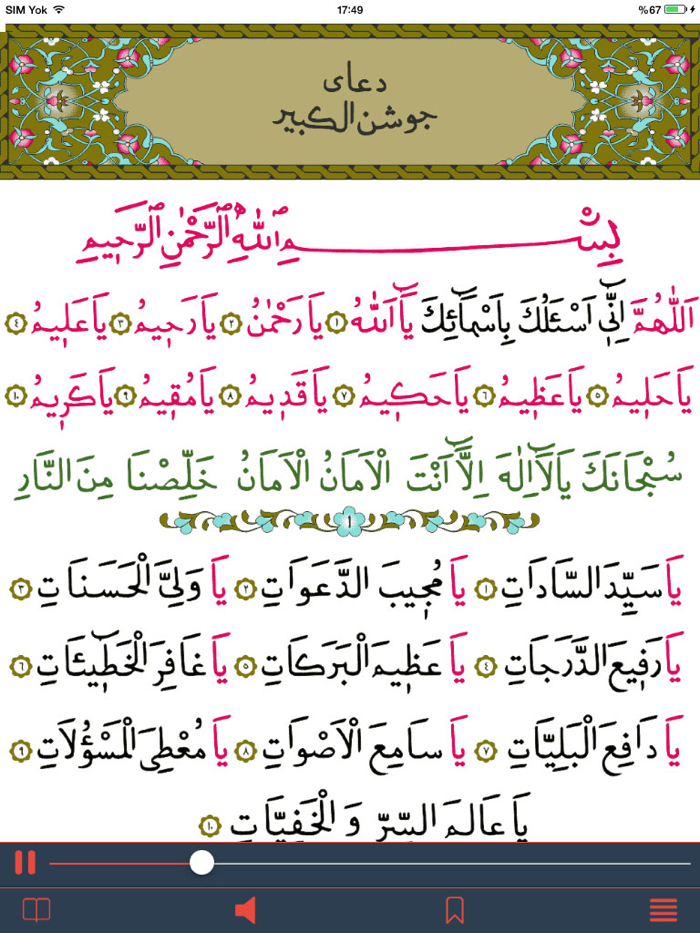 SIM Yok 17:49 %67
دعاى
جوشن الكبير
بِسْــــــمِ اللهِ الرَّحْمٰنِ الرَّحٖيمِ
اَللّٰهُمَّ اِنّٖٓى اَسْئَلُكَ بِاَسْمَٓائِكَ يَٓا اَللهُ ١ يَا رَحْمٰنُ ٢ يَا رَحٖيمُ ٣ يَا عَلٖيمُ ٤
يَا حَلٖيمُ ٥ يَا عَظٖيمُ ٦ يَا حَكٖيمُ ٧ يَا قَدٖيمُ ٨ يَا مُقٖيمُ ٩ يَا كَرٖيمُ ١٠
سُبْحَانَكَ يَا لَٓا اِلٰهَ اِلَّٓا اَنْتَ الْاَمَانُ الْاَمَانُ خَلِّصْنَا مِنَ النَّارِ
١
يَا سَيِّدَ السَّادَاتِ ١ يَا مُجٖيبَ الدَّعَوَاتِ ٢ يَا وَلِىَّ الْحَسَنَاتِ ٣
يَا رَفٖيعَ الدَّرَجَاتِ ٤ يَا عَظٖيمَ الْبَرَكَاتِ ٥ يَا غَافِرَ الْخَطٖٓيئَاتِ ٦
يَا دَافِعَ الْبَلِيَّاتِ ٧ يَا سَامِعَ الْاَصْوَاتِ ٨ يَا مُعْطِىَ الْمَسْؤُلَاتِ ٩
يَا عَالِمَ السِّرِّ وَ الْخَفِيَّاتِ ١٠